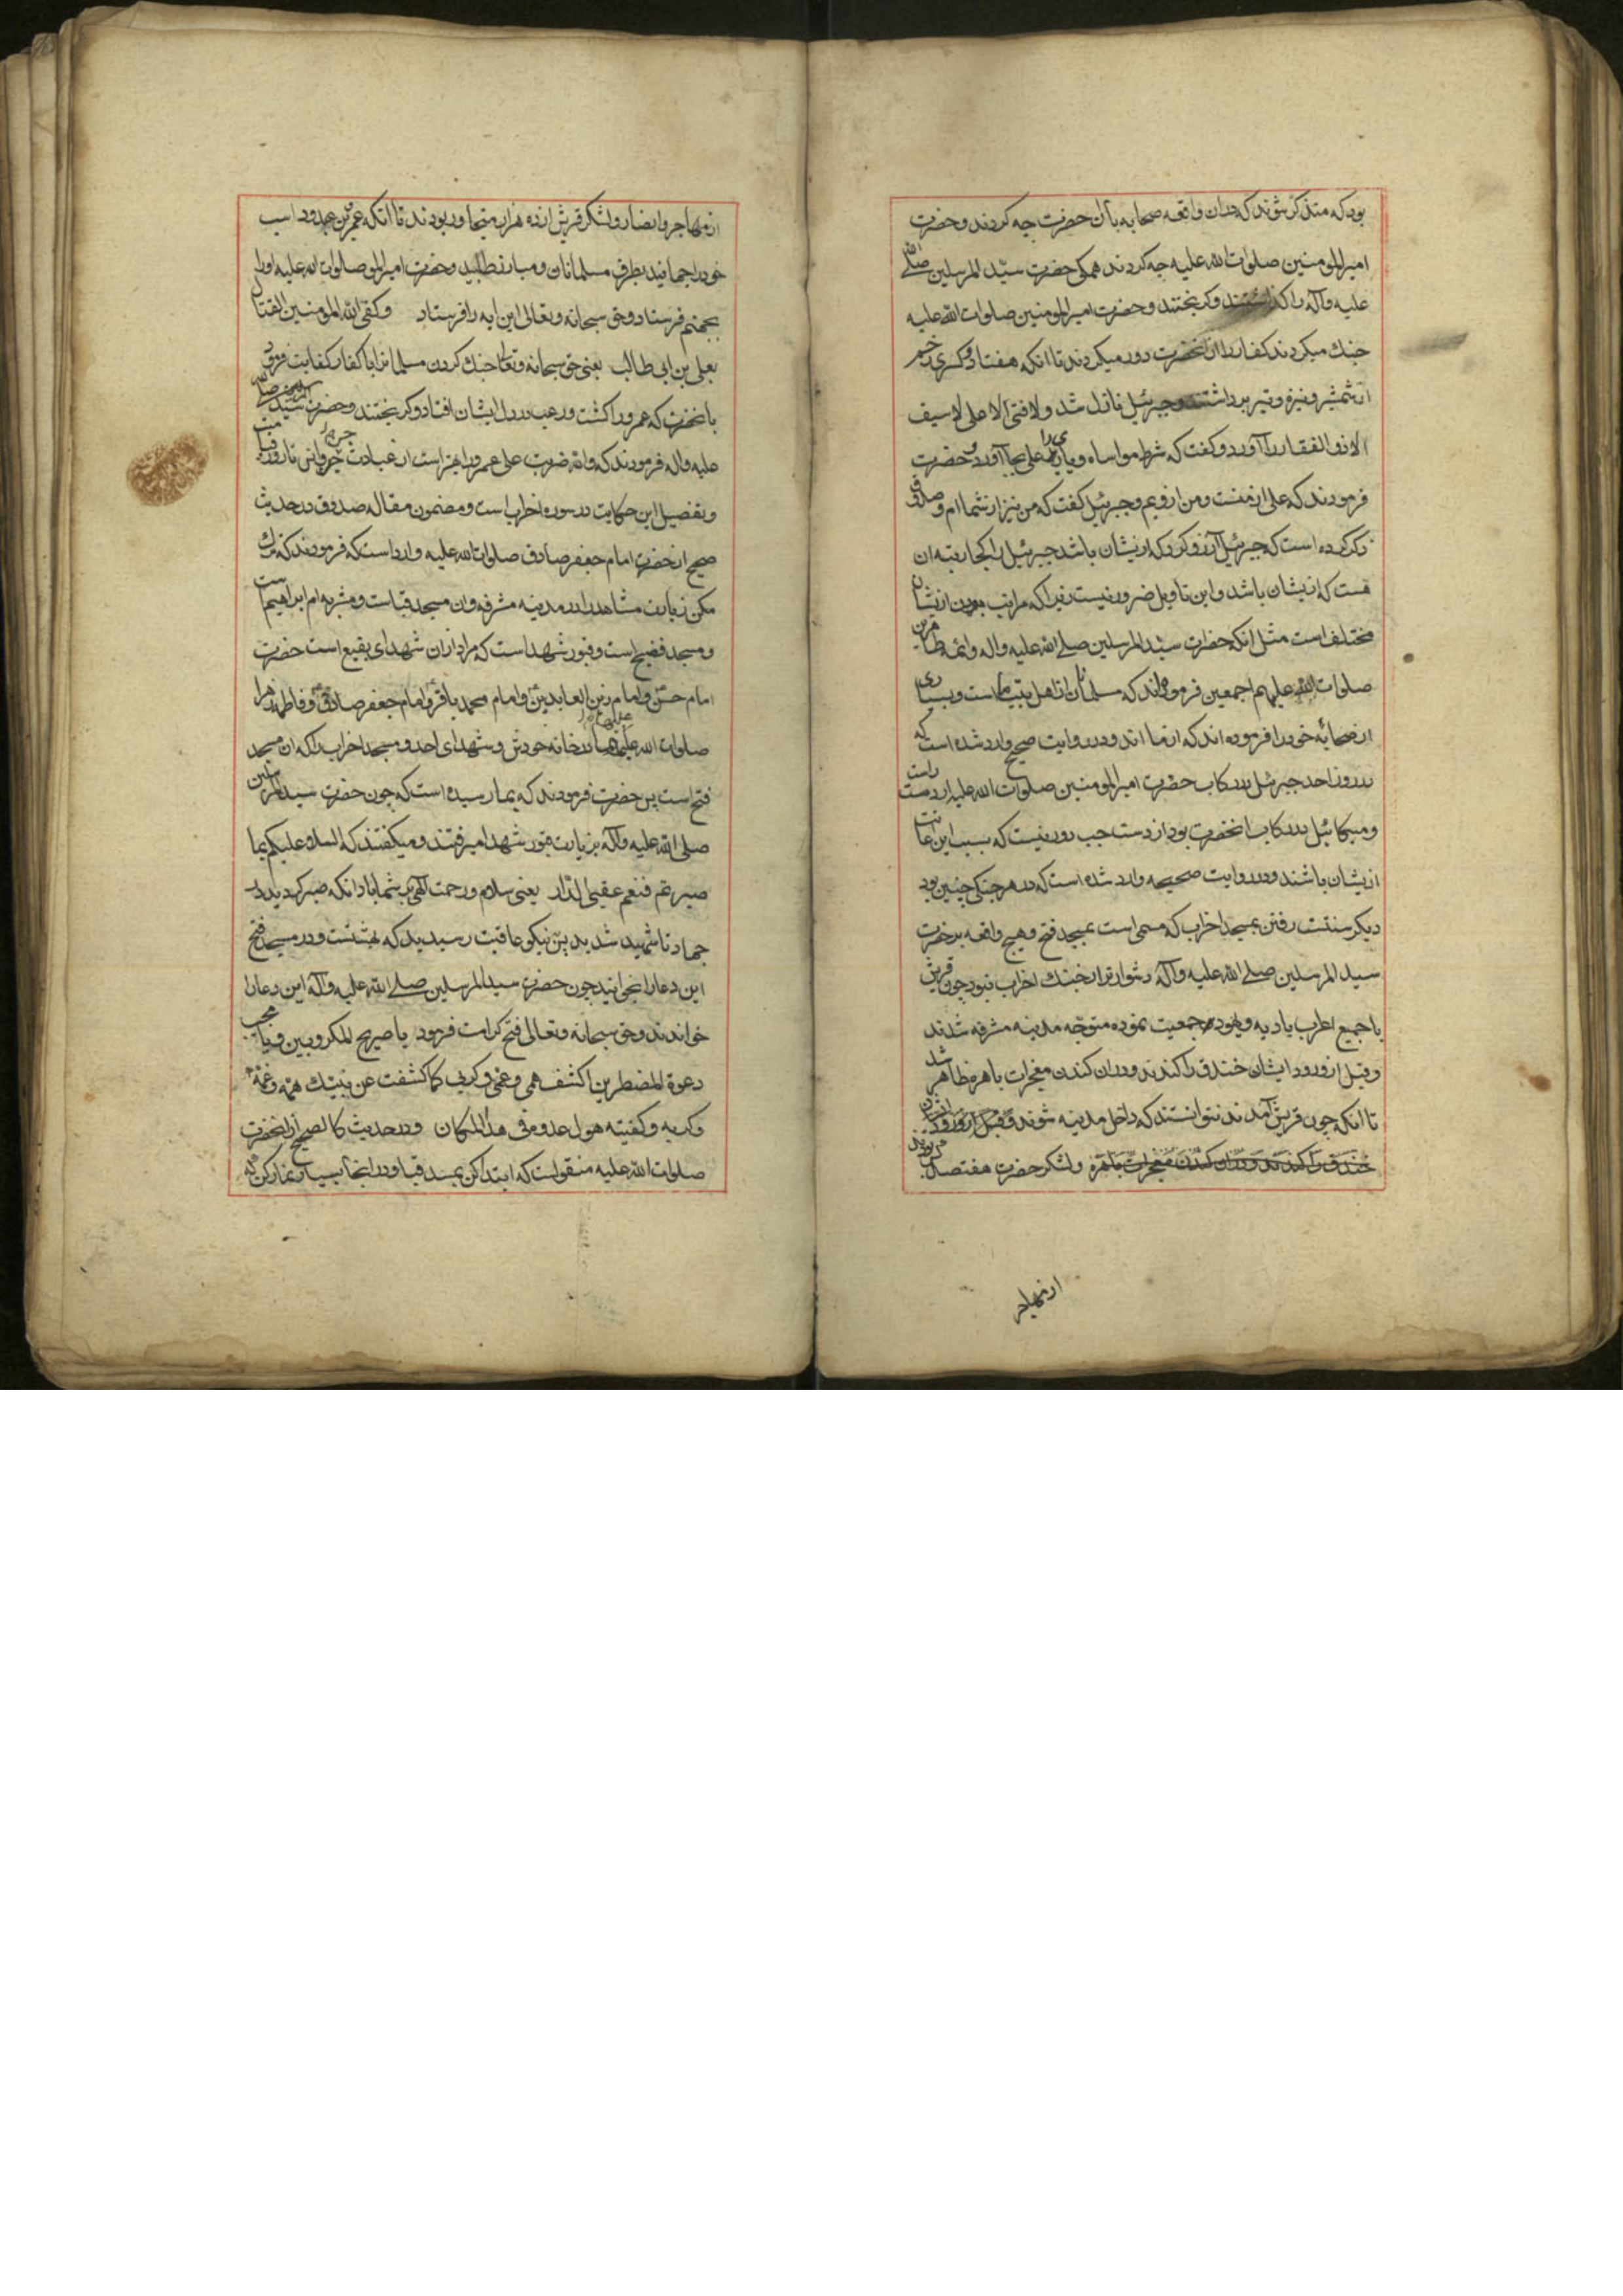 بود که متذکر شوند که دران واقعه صحابه بآن حضرت چه کردند و حضرت
امیرالمومنین صلوات الله علیه چه کردند همکی حضرت سیّد المرسلین صلی الله
علیه وآله را کذاشتند وکریختند و حضرت امیرالمومنین صلوات الله علیه
جنك میکردند کفار را از انحضرت دور میکردند تا انکه هفتاد و کسری زخم
از شمشیر و نیزه و تیر برداشتند و جبرئیل نازل شد و لا فتی الا علی لا سیف
الا ذو الفقار را آورد و کفت که شرط مواساه و یاری را علی بجا آورد و حضرت
فرمودند که علی از منست و من ازویم و جبرئیل کفت که من نیز از شماام و صدوق
ذکر کرده است که جبرئیل آرزو کرد که ازیشان باشد جبرئیل را کجا رتبه ان
هست که ازیشان باشد و این تاویل ضرور نیست زیرا که مراتب بودن ازیشان
مختلف است مثل انکه حضرت سیّد المرسلین صلی الله علیه واله وائمه طاهرین
صلوات الله علیهم اجمعین فرموده اند که سلمان از اهل بیت ماست و بسیاری
از صحابه خود را فرموده اند که از ما اند و در روایت صحیح وارد شده است که
در روز احد جبرئیل در رکاب حضرت امیرالمومنین صلوات الله علیه از دست راست
و میکائیل در رکاب انحضرت بود از دست چپ دور نیست که بسبب این
ازیشان باشند و در روایت صحیحه وارد شده است که در هر جنکی چنین بود
دیکر سنتست رفتن بمسجد احزاب که مسمی است بمسجد فتح و هیچ واقعه بر حضرت
سید المرسلین صلی الله علیه وآله دشوارتر از جنك احزاب نبود چون قریش
با جمیع اعراب بادیه و یهود جمعیت نموده متوجه مدینه مشرفه شدند
و قبل از ورود ایشان خندق را کندند و دران کندن معجزات باهره ظاهر شد
تا انکه چون قریش آمدند نتوانستند که داخل مدینه شوند و قبل از ورود ایشان
خندق را کندند و دران کندن معجزات باهره و لشکر حضرت هفتصد کس بودند
از مهاجر
از مهاجر و انصار و لشکر قریش از ده هزار متجاوز بودند تا انکه عمر بن عبدود اسب
خود را جهانید بطرف مسلمانان و مبارز طلبید و حضرت امیرالمو صلوات الله علیه او را
بجهنم فرستاد و حق سبحانه وتعالی این ایه را فرستاد وکفی الله المومنین القتال
بعلی بن ابی طالب یعنی حق سبحانه وتعالی جنك کردن مسلمانرا با کفار کفایت فرمود
بانحضرت که عمرو را کشت و رعب در دل ایشان افتاد و کریختند و حضرت سیّد المرسلین صلی الله
علیه واله فرمودند که والله ضربت علی عمرو را بهتر است از عبادت جن وانس تا روز قیامت
و تفصیل این حکایت در سوره احزاب است و مضمون مقاله صدوق در حدیث
صحیح از حضرت امام جعفر صادق صلوات الله علیه وارد است که فرمودند که ترك
مکن زیارت مشاهد را در مدینه مشرفه و ان مسجد قباست و مشربه ام ابراهیم است
و مسجد فضیح است و قبور شهداست که مراد ازان شهدای بقیع است حضرت
امام حسن و امام زین العابدین و امام محمد باقر و امام جعفر صادق و فاطمه زهرا
صلوات الله علیهم در خانه خودش و شهدای احد و مسجد احزاب را که ان مسجد
فتح است پس حضرت فرمودند که بما رسیده است که چون حضرت سید المرسلین
صلی الله علیه وآله بزیارت قبور شهدا میرفتند و میکفتند که السلام علیکم بما
صبرتم فنعم عقبی الدّار یعنی سلام و رحمت آلهی بر شما باد انکه صبر کردید در
جهاد تا شهید شدید پس نیکو عاقبت رسیدید که بهشتست و در مسجد فتح
این دعا را بخوانید چون حضرت سید المرسلین صلی الله علیه وآله این دعا را
خواندند و حق سبحانه وتعالی فتح کرامت فرمود یا صریخ المکروبین ویا مجیب
دعوة المضطرین اکشف همی وغمی وکربی کما کشفت عن نبیّك همّه وغمّه
وکربه وکفیته هول عدوه فی هذا المکان و در حدیث کالصحیح از انحضرت
صلوات الله علیه منقولست که ابتدا کن بمسجد قبا و در انجا بسیار نماز کن که